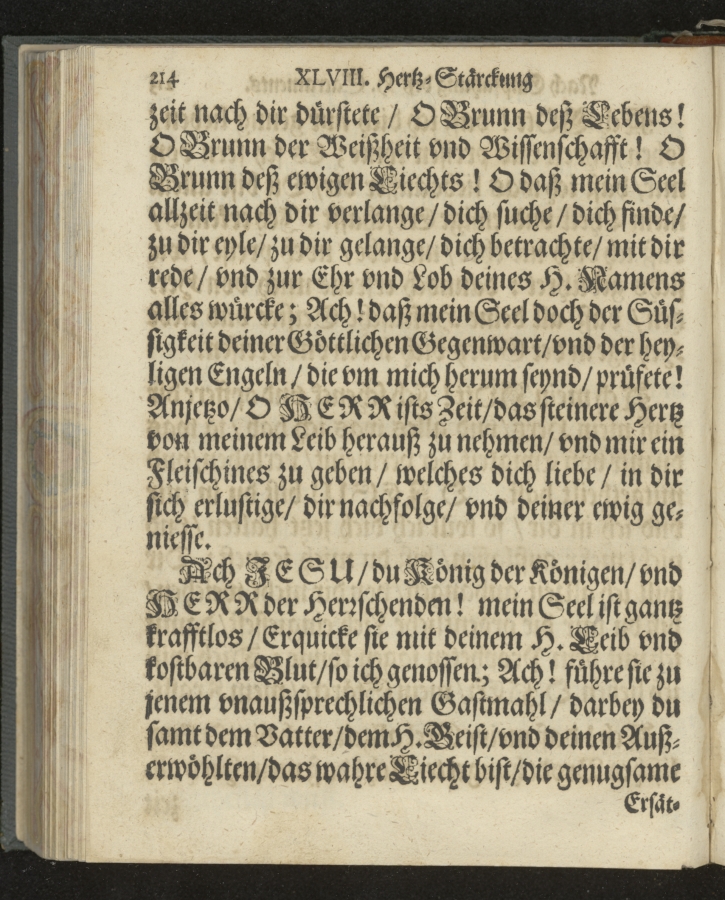 214 XLVIII. Hertz-Stärckung
zeit nach dir dürstete / O Brunn deß Lebens!
O Brunn der Weißheit vnd Wissenschafft! O
Brunn deß ewigen Liechts! O daß mein Seel
allzeit nach dir verlange/ dich suche/ dich finde/
zu dir eyle/ zu dir gelange/ dich betrachte/ mit dir
rede/ vnd zur Ehr vnd Lob deines H. Namens
alles würcke; Ach! daß mein Seel doch der Süs-
sigkeit deiner Göttlichen Gegenwart/ vnd der hey-
ligen Engeln/ die vm mich herum seynd/ prüfete!
Anjetzo/ O HERR ists Zeit/ das steinere Hertz
von meinem Leib herauß zu nehmen/ vnd mir ein
Fleischines zu geben/ welches dich liebe/ in dir
sich erlustige/ dir nachfolge/ vnd deiner ewig ge-
niesse.
Ach JESU/ du König der Königen/ vnd
HERR der Herrschenden! mein Seel ist gantz
krafftlos/ Erquicke sie mit deinem H. Leib vnd
kostbaren Blut/ so ich genossen; Ach! führe sie zu
jenem vnaußsprechlichen Gastmahl/ darbey du
samt dem Vatter/ dem H. Geist/ vnd deinen Auß-
erwöhlten/ das wahre Liecht bist/ die genugsame
Ersät-